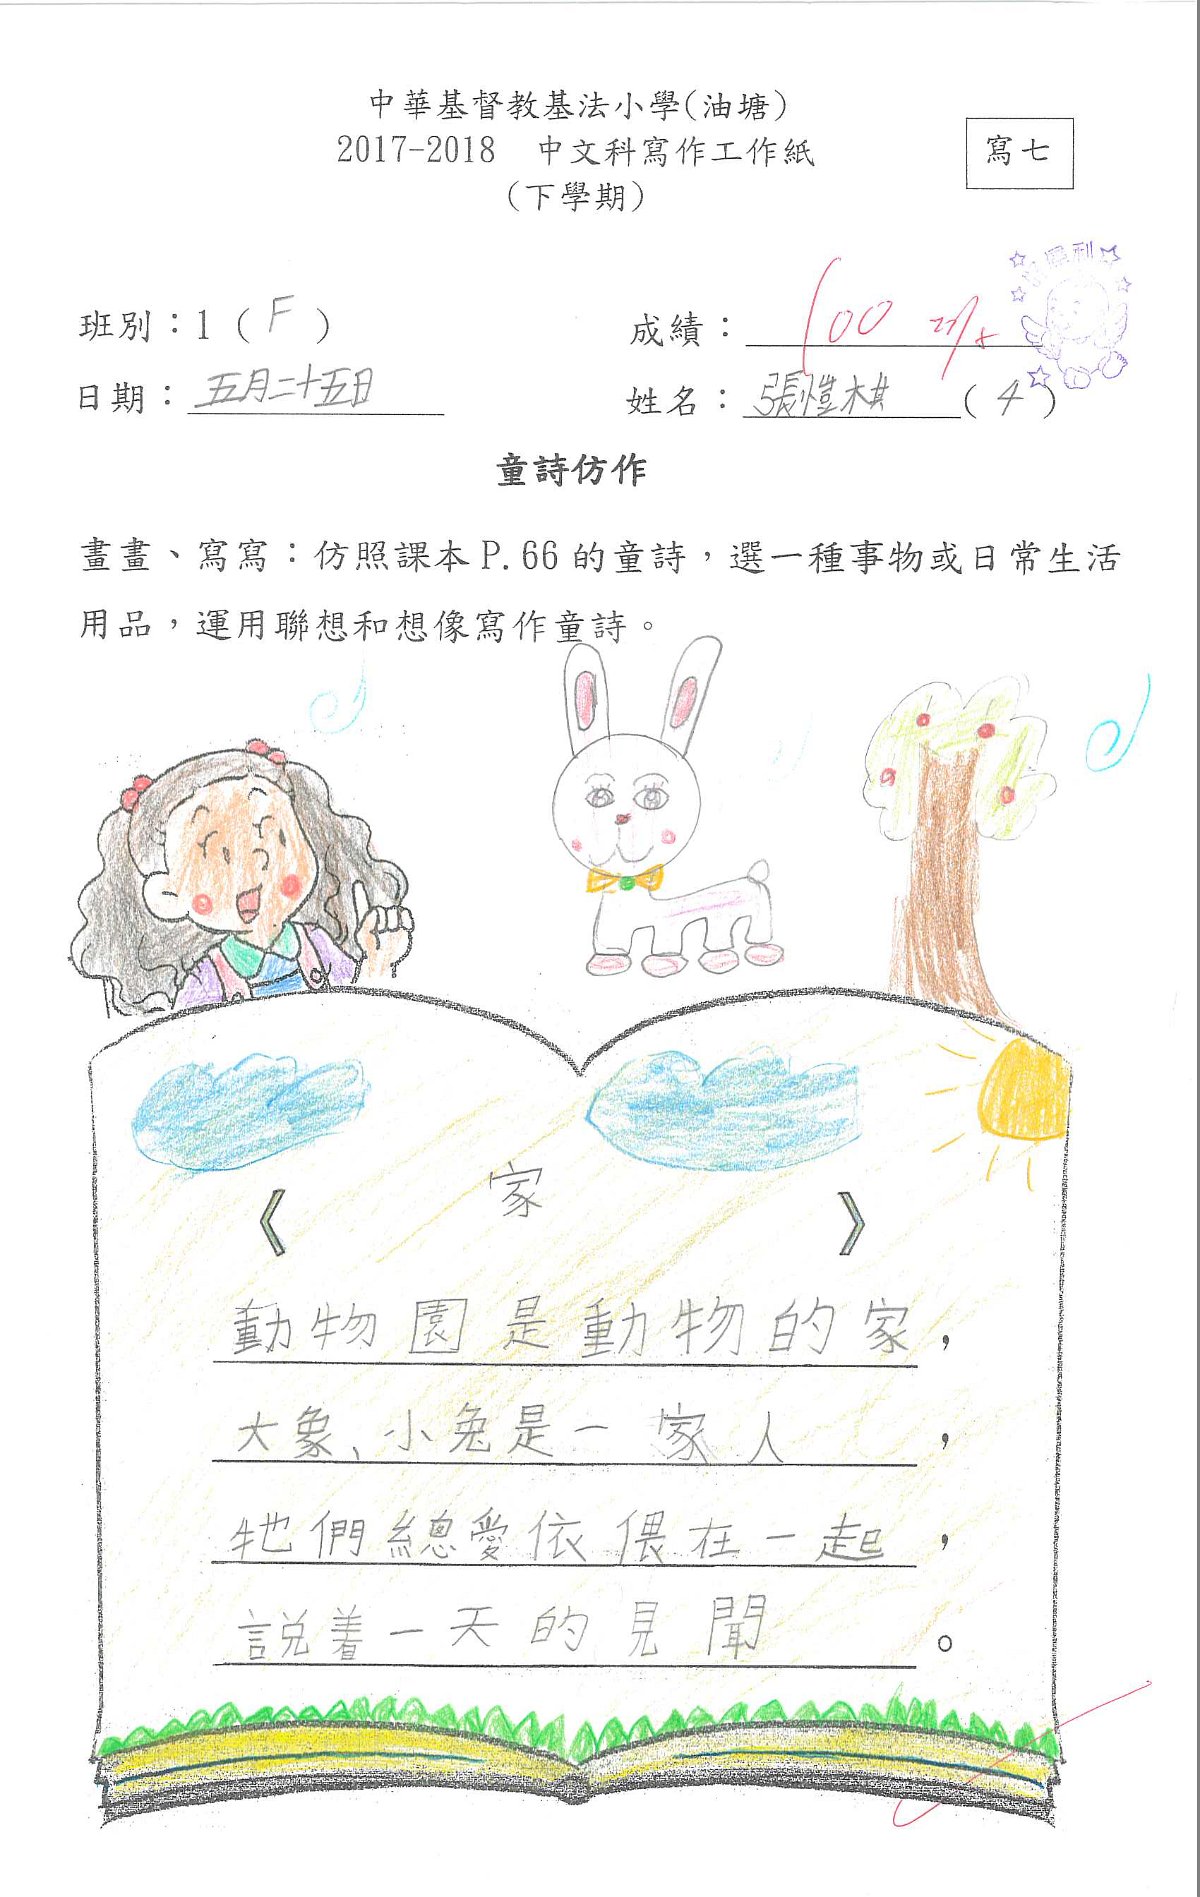 中華基督教基法小學(油塘)
2017-2018 中文科寫作工作紙
(下學期)
寫七
班別：1 ( F )
成績：100 
日期：五月二十五日
姓名：張愷棋 ( 4 )
童詩仿作
畫畫、寫寫：仿照課本 P.66 的童詩，選一種事物或日常生活
用品，運用聯想和想像寫作童詩。
《 家 》
動物園是動物的家，
大象、小兔是一家人，
牠們總愛依偎在一起，
說着一天的見聞。